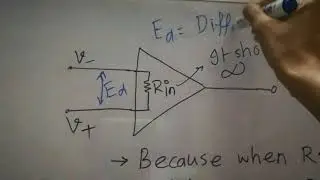 Ed = Diff
V-
Ed
Rin
It sho
∞
V+
→ Because when R